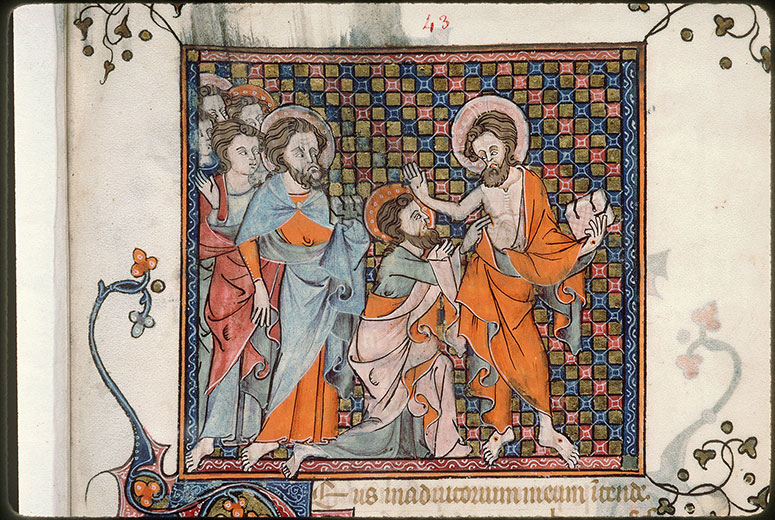 43
Eus in adiutorium meum ītende.